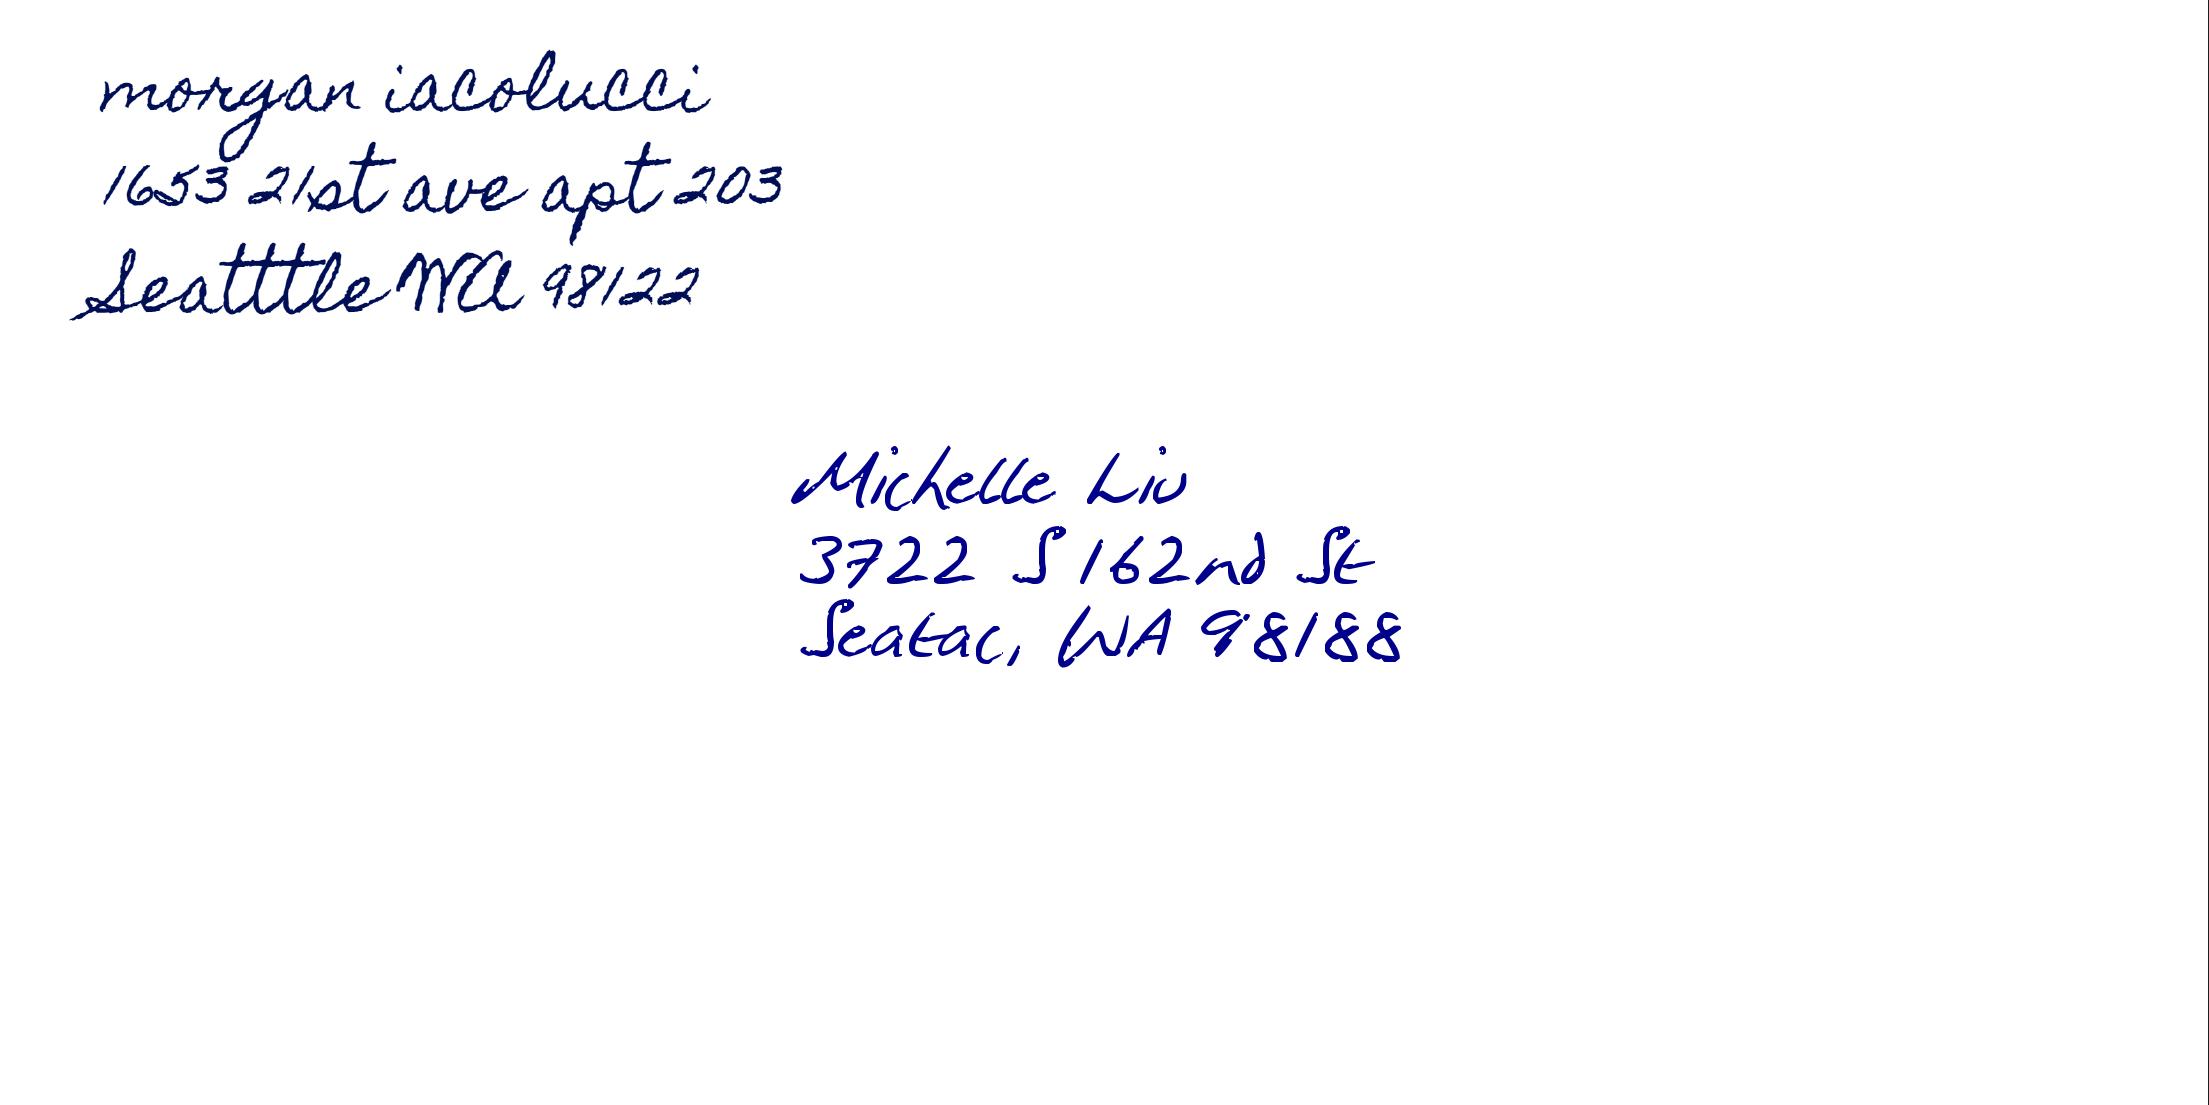 morgan iacolucci
1653 21st ave apt 203
Seatttle WA 98122
Michelle Liu
3722 S 162nd St
Seatac, WA 98188